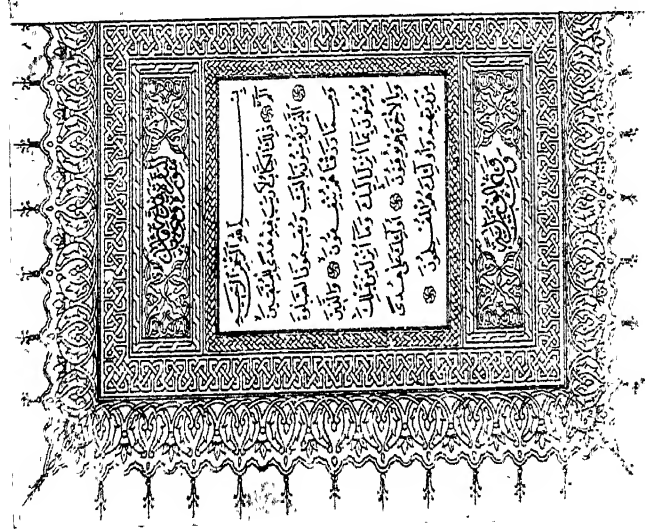 بِسْمِ اللَّهِ الرَّحْمَٰنِ الرَّحِيمِ
الٓمٓ ۝ ذَٰلِكَ الْكِتَابُ لَا رَيْبَ فِيهِ هُدًى لِلْمُتَّقِينَ
۝ الَّذِينَ يُؤْمِنُونَ بِالْغَيْبِ وَيُقِيمُونَ الصَّلَوٰةَ
وَمِمَّا رَزَقْنَاهُمْ يُنْفِقُونَ ۝ وَالَّذِينَ
يُؤْمِنُونَ بِمَا أُنْزِلَ إِلَيْكَ وَمَا أُنْزِلَ مِنْ قَبْلِكَ
وَبِالْآخِرَةِ هُمْ يُوقِنُونَ ۝ أُولَٰئِكَ عَلَىٰ هُدًى
مِنْ رَبِّهِمْ وَأُولَٰئِكَ هُمُ الْمُفْلِحُونَ ۝